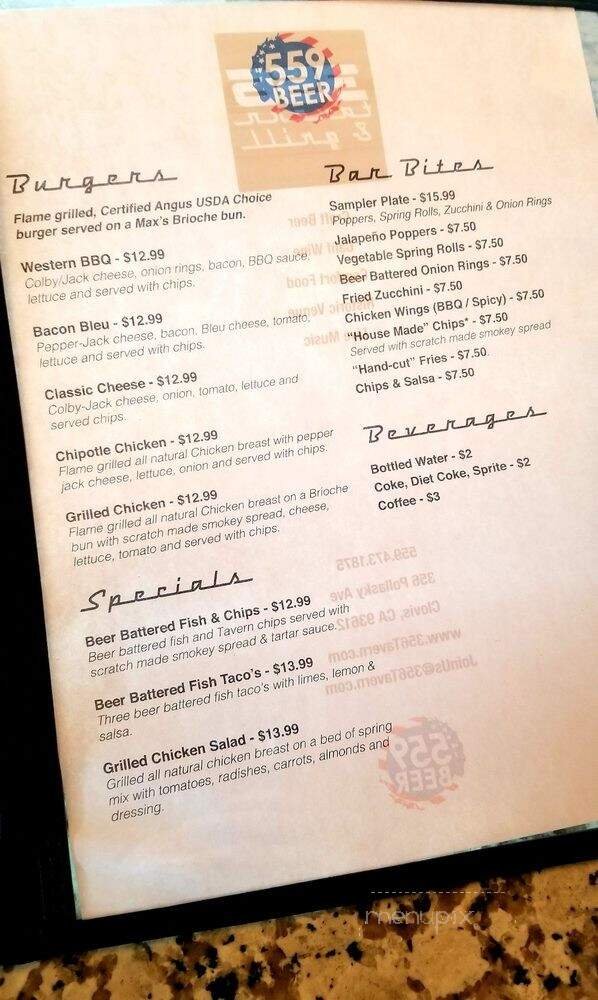 559
BEER
Burgers
Flame grilled, Certified Angus USDA Choice
burger served on a Max's Brioche bun.
Western BBQ - $12.99
Colby/Jack cheese, onion rings, bacon, BBQ sauce,
lettuce and served with chips.
Bacon Bleu - $12.99
Pepper-Jack cheese, bacon, Bleu cheese, tomato,
lettuce and served with chips.
Classic Cheese - $12.99
Colby-Jack cheese, onion, tomato, lettuce and
served chips.
Chipotle Chicken - $12.99
Flame grilled all natural Chicken breast with pepper
jack cheese, lettuce, onion and served with chips.
Grilled Chicken - $12.99
Flame grilled all natural Chicken breast on a Brioche
bun with scratch made smokey spread, cheese,
lettuce, tomato and served with chips.
Specials
Beer Battered Fish & Chips - $12.99
Beer battered fish and Tavern chips served with
scratch made smokey spread & tartar sauce.
Beer Battered Fish Taco's - $13.99
Three beer battered fish taco's with limes, lemon &
salsa.
Grilled Chicken Salad - $13.99
Grilled all natural chicken breast on a bed of spring
mix with tomatoes, radishes, carrots, almonds and
dressing.
Bar Bites
Sampler Plate - $15.99
Poppers, Spring Rolls, Zucchini & Onion Rings
Jalapeño Poppers - $7.50
Vegetable Spring Rolls - $7.50
Beer Battered Onion Rings - $7.50
Fried Zucchini - $7.50
Chicken Wings (BBQ / Spicy) - $7.50
"House Made" Chips* - $7.50
Served with scratch made smokey spread
"Hand-cut" Fries - $7.50
Chips & Salsa - $7.50
Beverages
Bottled Water - $2
Coke, Diet Coke, Sprite - $2
Coffee - $3
559.473.1875
356 Pollasky Ave
Clovis, CA 93612
www.356Tavern.com
JoinUs@356Tavern.com
559
BEER
menupix